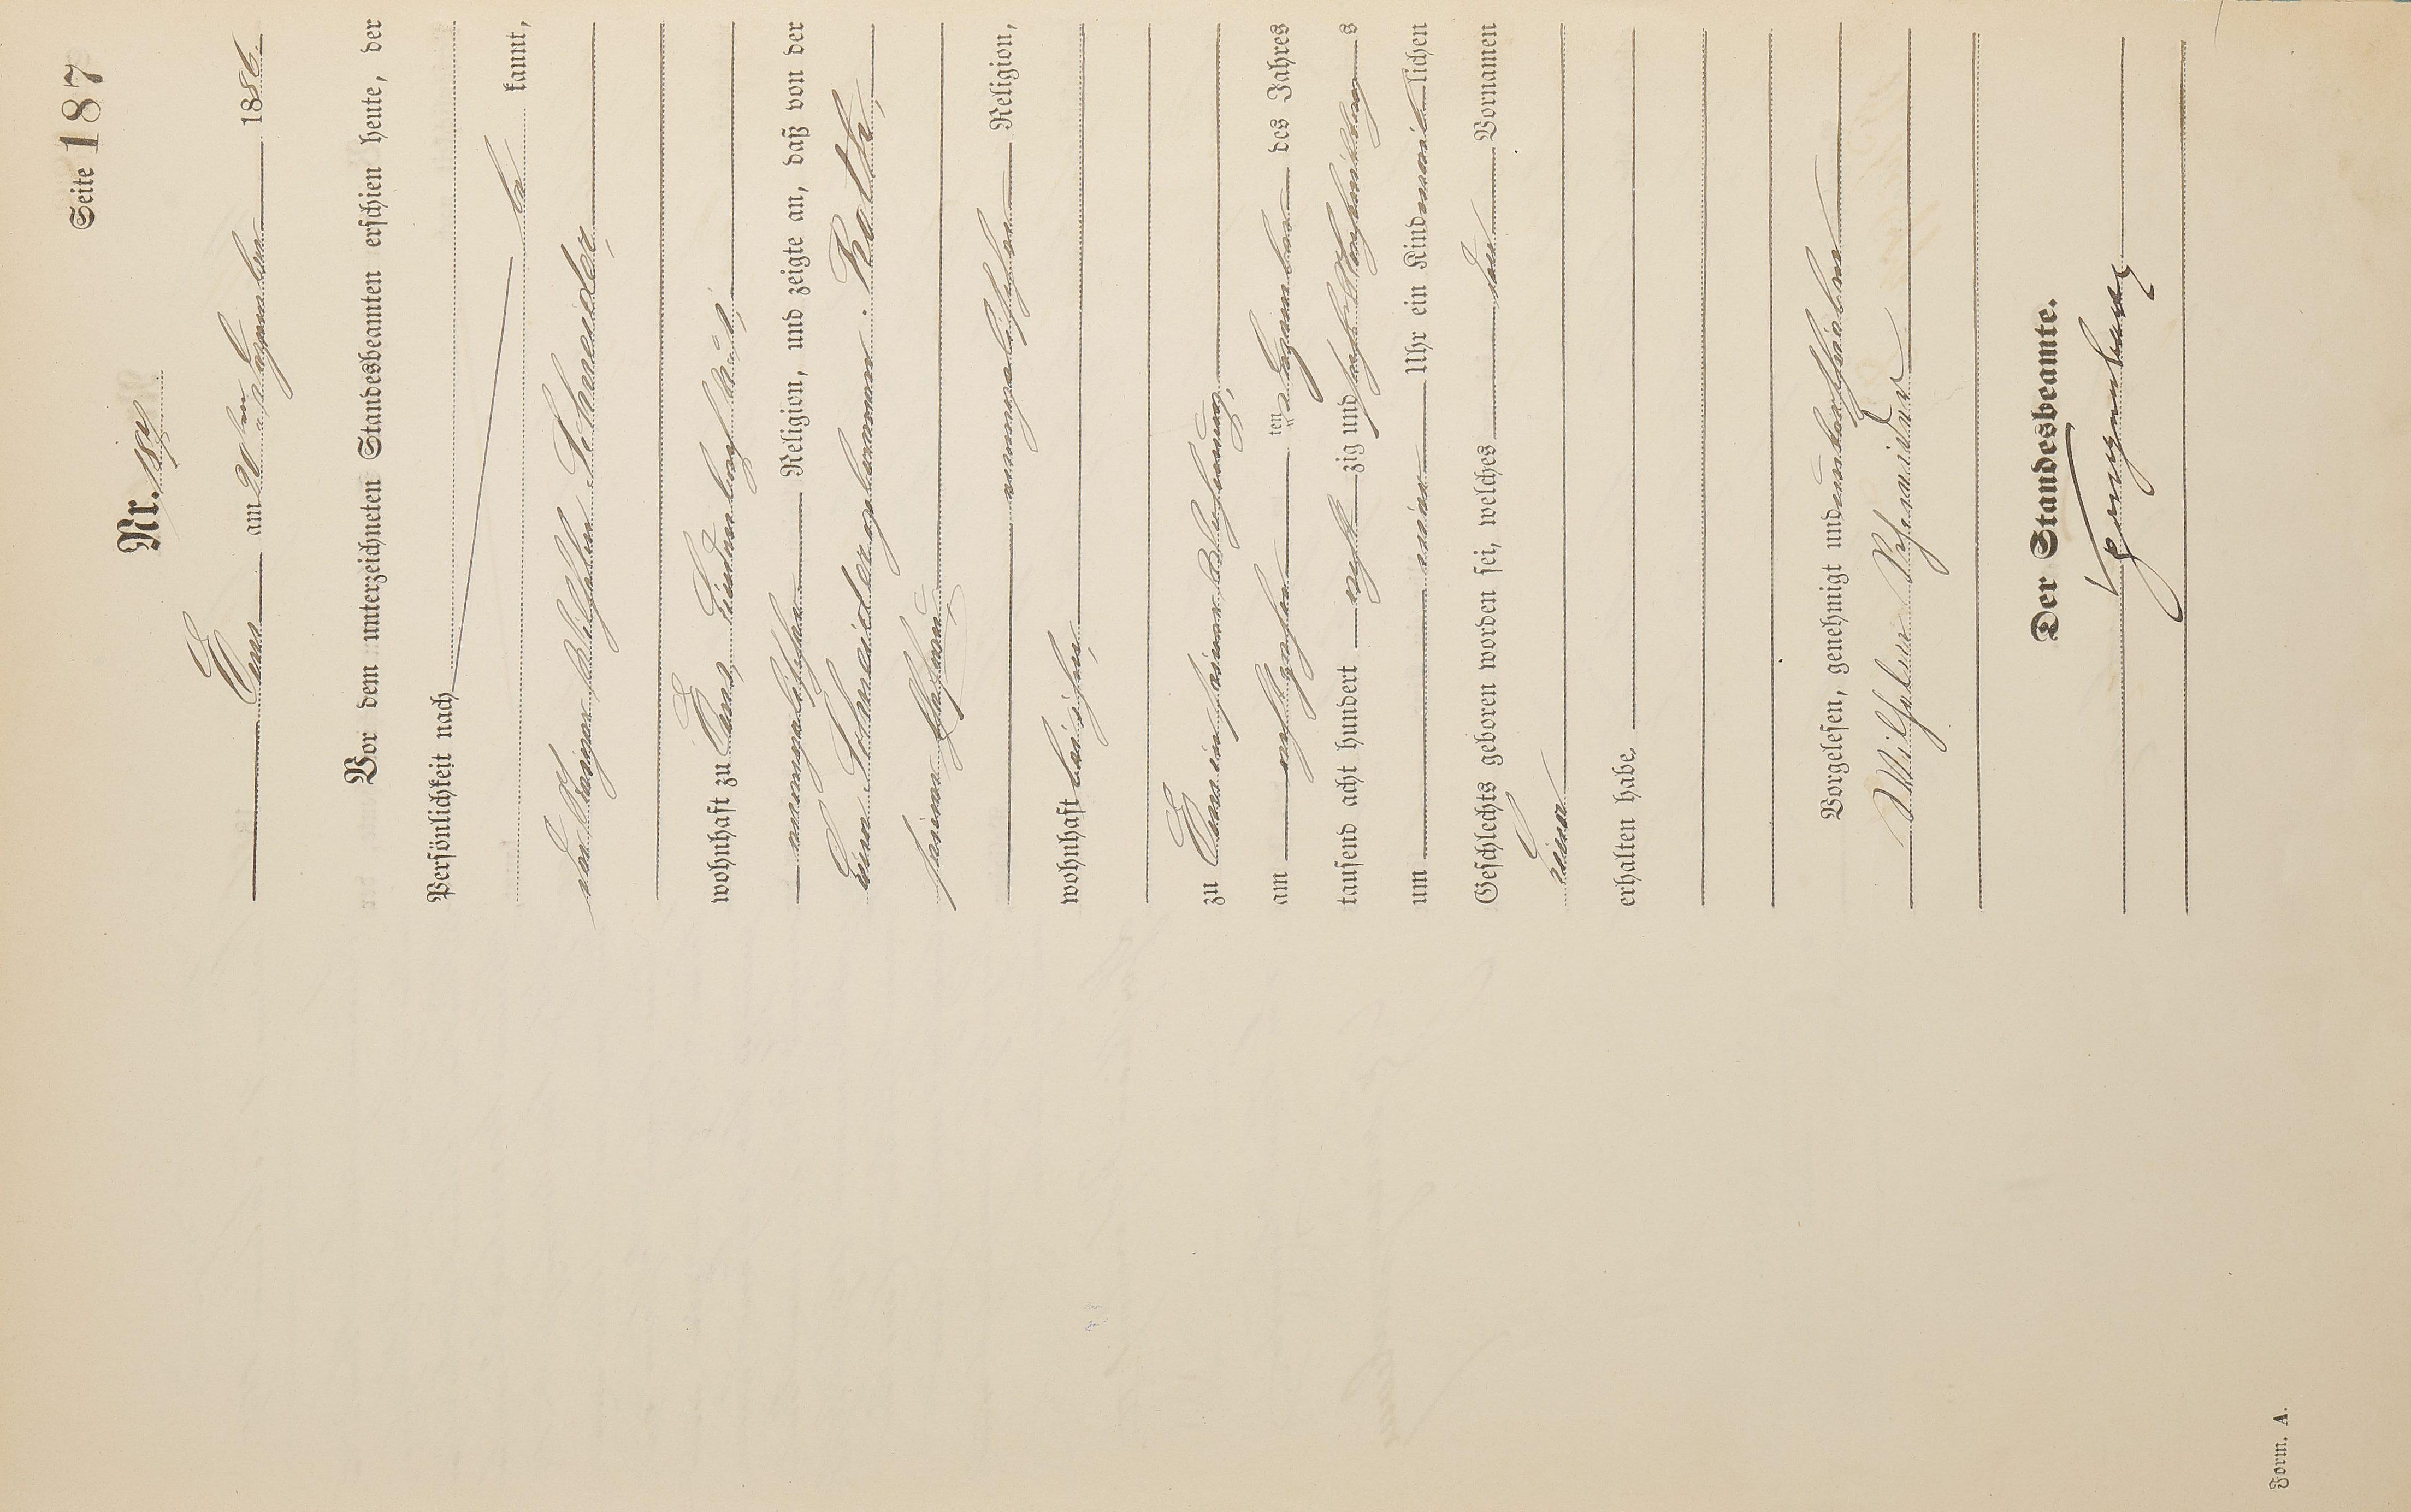 Seite 187
Nr. 187
Ems am 20ten Dezember 1886.
Vor dem unterzeichneten Standesbeamten erschien heute, der
Persönlichkeit nach
be kannt,
der Wilhelm Schneider,
wohnhaft zu Ems,
evangelischer Religion, und zeigte an, daß von der
Schneider geborenen Roth,
seiner Ehefrau,
evangelischer Religion,
wohnhaft bei ihm,
zu Ems in seiner Wohnung,
am achtzehnten Dezember des Jahres
tausend acht hundert acht zig und sechs Nachmittags
um ein Uhr ein Kind männlichen
Geschlechts geboren worden sei, welches den Vornamen
erhalten habe.
Vorgelesen, genehmigt und unterschrieben
Wilhelm Schneider
Der Standesbeamte.
Form. A.